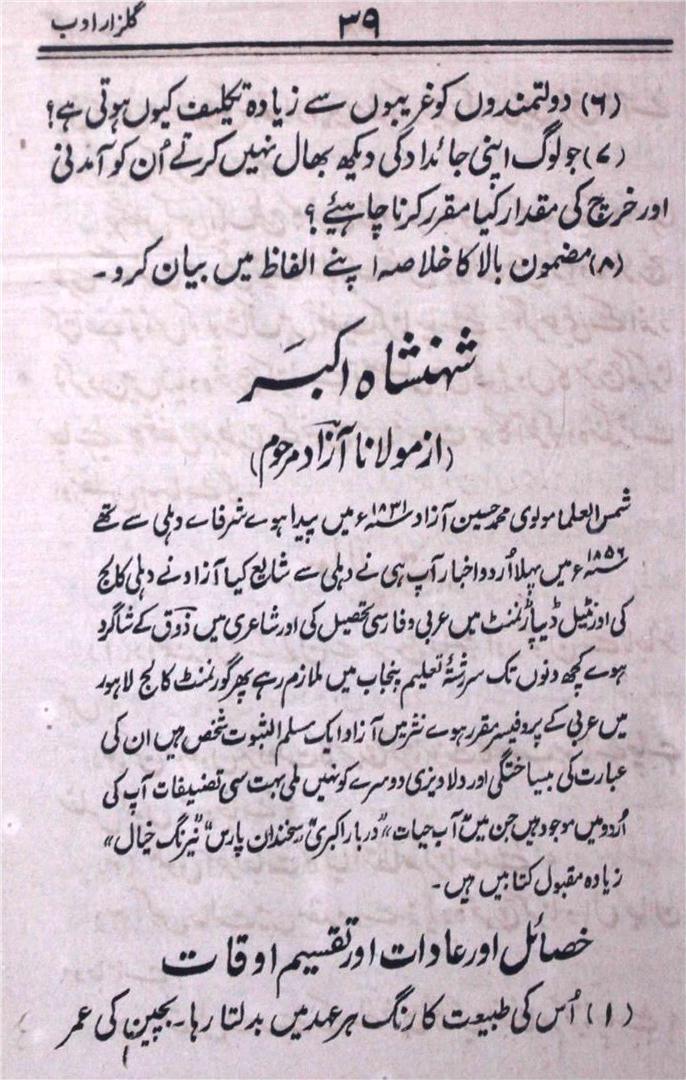 گلزار ادب ۳۹
(۶) دولتمندوں کو غریبوں سے زیادہ تکلیف کیوں ہوتی ہے؟
(۷) جو لوگ اپنی جائداد کی دیکھ بھال نہیں کرتے اُن کو آمدنی
اور خرچ کی مقدار کیا مقرر کرنا چاہیئے؟
(۸) مضمون بالا کا خلاصہ اپنے الفاظ میں بیان کرو۔
شہنشاہ اکبر
(از مولانا آزاد مرحوم)
شمس العلما مولوی محمد حسین آزاد ۱۸۳۱ء میں پیدا ہوے شرفاے دہلی سے تھے
۱۸۵۶ء میں پہلا اُردو اخبار آپ ہی نے دہلی سے شایع کیا آزاد نے دہلی کالج
کی اورنٹیل ڈیپارٹمنٹ میں عربی و فارسی تحصیل کی اور شاعری میں ذوق کے شاگرد
ہوے کچھ دنوں تک سررشتۂ تعلیم پنجاب میں ملازم رہے پھر گورنمنٹ کالج لاہور
میں عربی کے پروفیسر مقرر ہوے نثر میں آزاد ایک مسلم الثبوت شخص ہیں ان کی
عبارت کی بیساختگی اور دلاویزی دوسرے کو نہیں ملی بہت سی تصنیفات آپ کی
اُردو میں موجود ہیں جن میں "آب حیات" "دربار اکبری" "سخندان پارس" "نیرنگ خیال"
زیادہ مقبول کتابیں ہیں۔
خصائل اور عادات اور تقسیم اوقات
(۱) اُس کی طبیعت کا رنگ ہر عہد میں بدلتا رہا۔ بچپن کی عمر